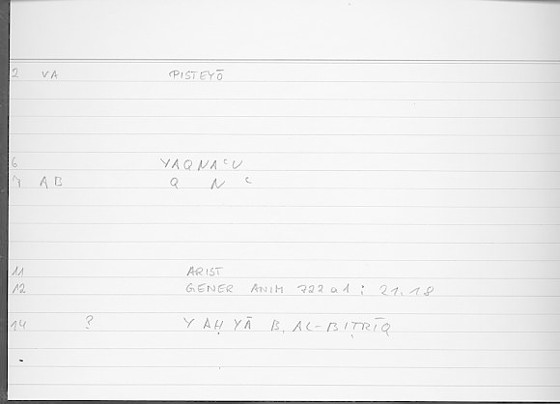 2 VA PISTEYŌ
6 YAQNAʿU
7 AB Q N ʿ
11 ARIST
12 GENER ANIM 722a1: 21.18
14 ? YAḤYĀ B. AL-BIṬRĪQ